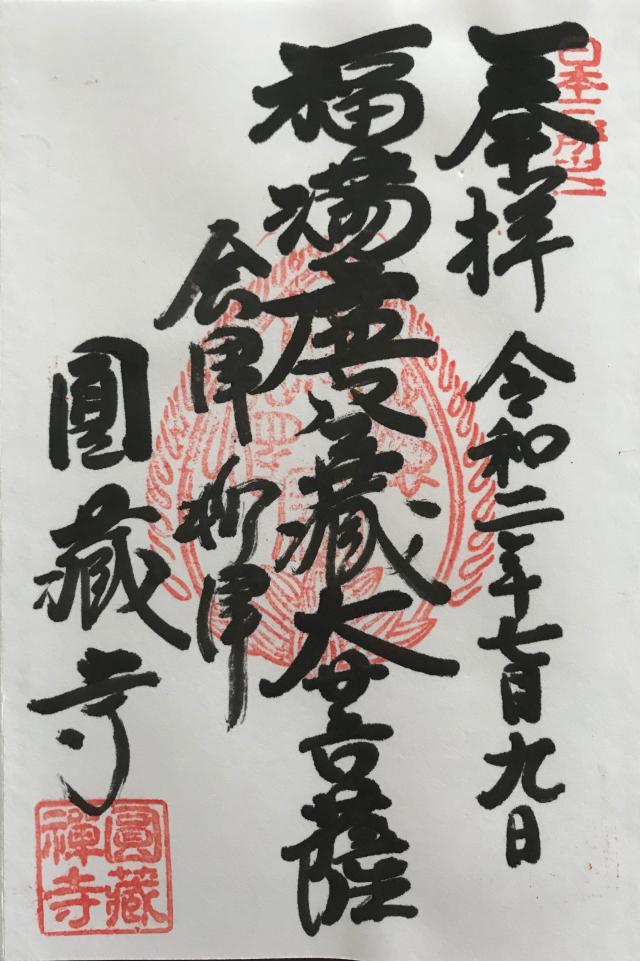 日本三所之一
奉拝 令和二年七月九日
福満虚空藏大菩薩
会津 柳津
圓藏寺
圓藏
禪寺